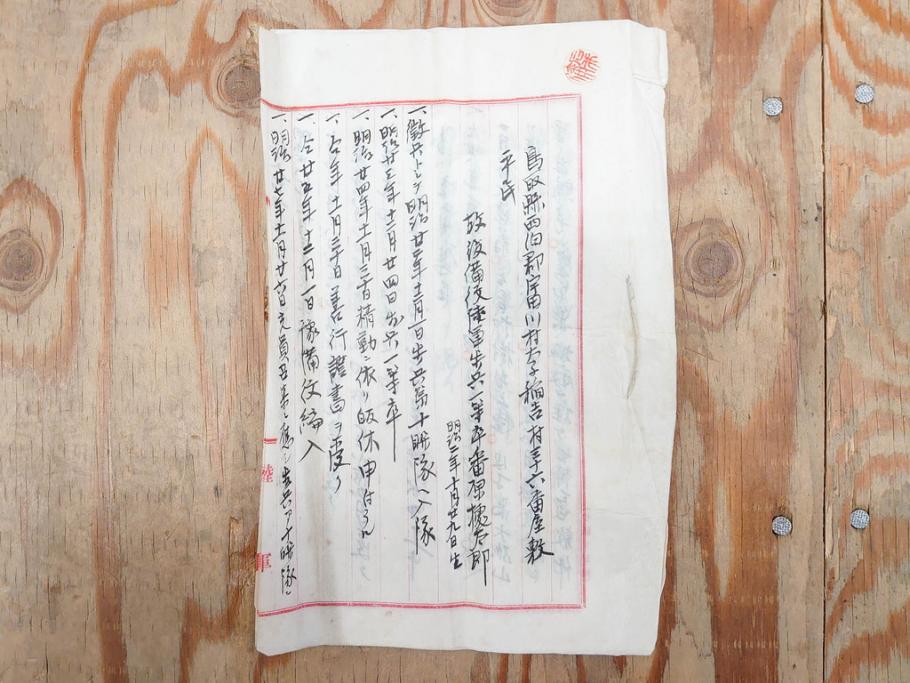 鳥取縣西伯郡宇田川村大字稲吉村三十六番屋敷
平民
故後備役陸軍歩兵一等卒番原穂太郎
明治二年十月廿九日生
一、徴兵トシテ明治廿二年十二月一日歩兵第十聯隊ヘ入隊
一、明治廿三年十二月廿四日歩兵一等卒
一、明治廿四年十一月三十日精勤ニ依リ帰休申付ラル
一、仝年十一月三十日善行證書ヲ受リ
一、仝廿五年十二月一日豫備役編入
一、明治廿七年十一月廿六日充員召集ニ應シ歩兵第十聯隊ニ
陸軍